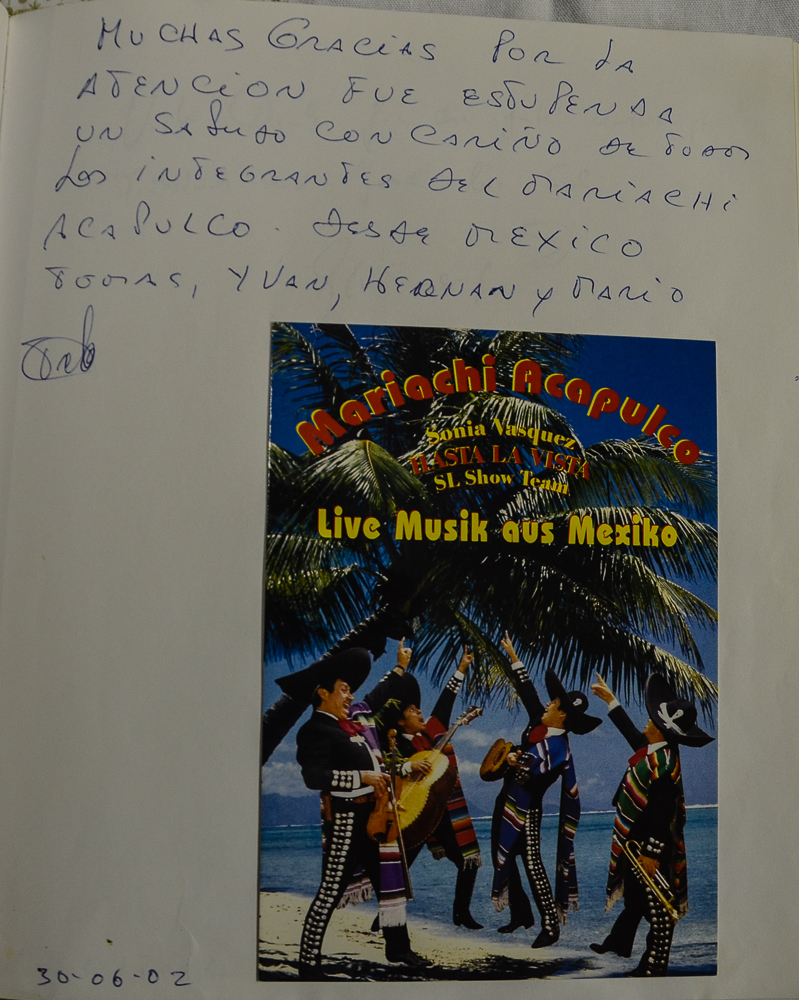 MUCHAS GRACIAS POR LA
ATENCION FUE ESTUPENDA
UN SALUDO CON CARIÑO DE TODOS
LOS INTEGRANTES DEL MARIACHI
ACAPULCO. DESDE MEXICO
TOMAS, YVAN, HERNAN y MARIO
Mariachi Acapulco
Sonia Vasquez
HASTA LA VISTA
SL Show Team
Live Musik aus Mexiko
30-06-02